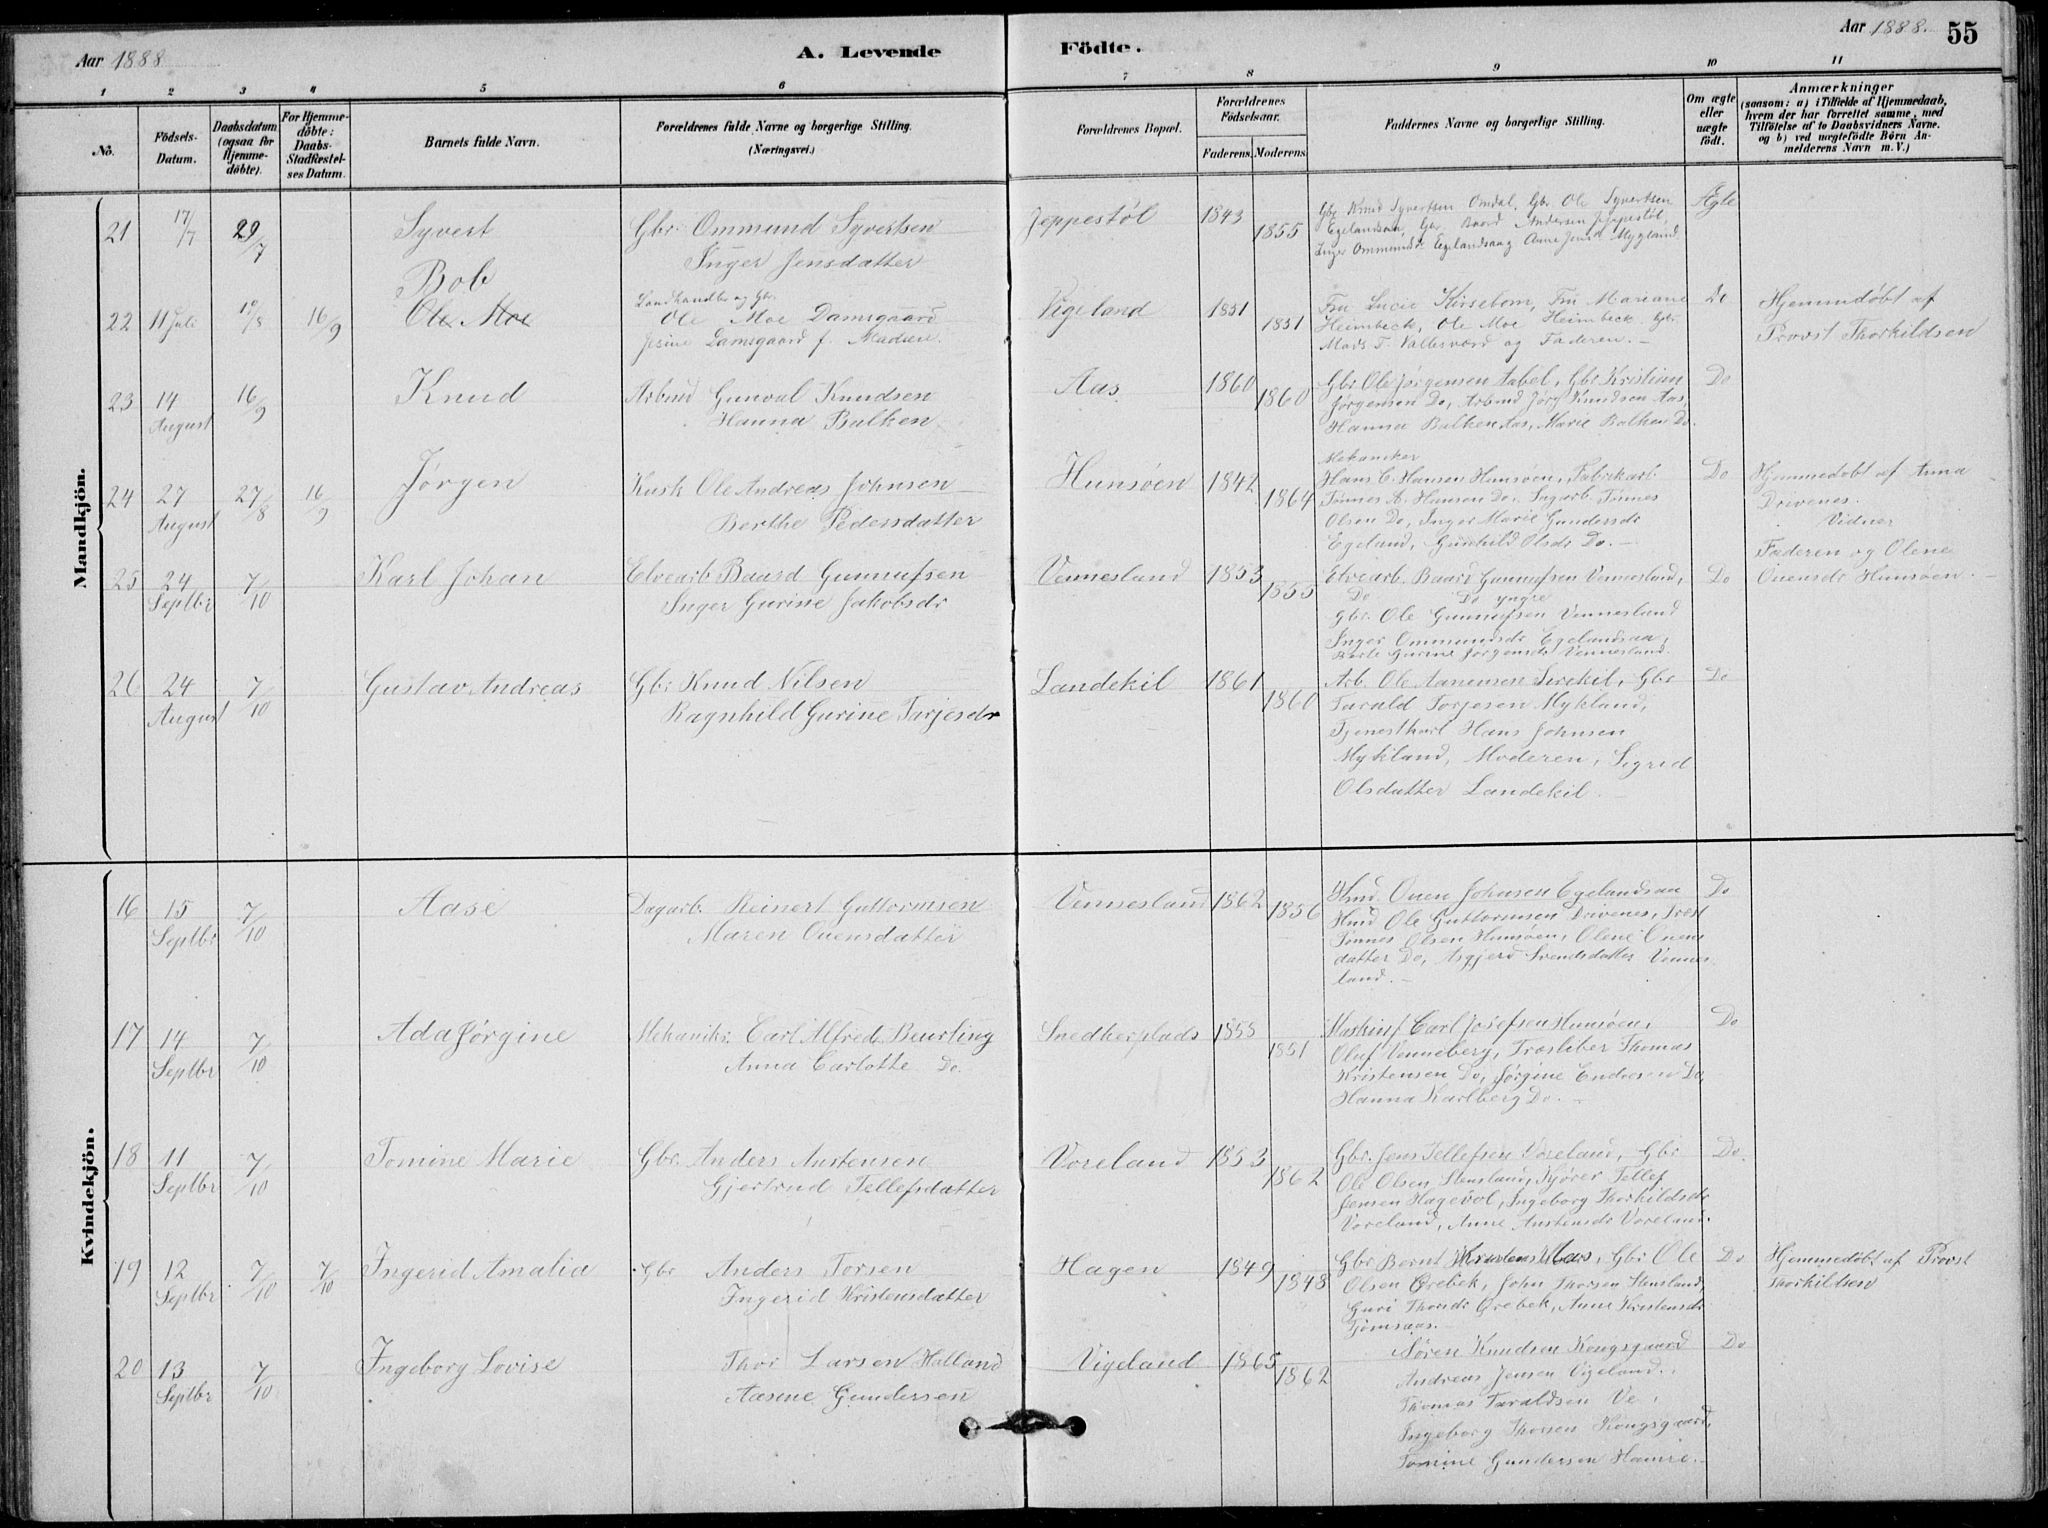 Aar 1888
A. Levende
Födte.
Aar 1888.
55
1 2 3 4 5 6 7 8 9 10 11
No.
Födsels-Datum.
Daabsdatum (ogsaa for Hjemmedöbte).
For Hjemmedöbte: Daabs-Stadfestelses Datum.
Barnets fulde Navn.
Forældrenes fulde Navne og borgerlige Stilling.
(Næringsvei.)
Forældrenes Bopæl.
Forældrenes Födselsaar.
Faderens. Moderens.
Faddernes Navne og borgerlige Stilling.
Om ægte eller uægte födt.
Anmærkninger
(saasom: a) i Tilfælde af Hjemmedaab, hvem der har forrettet samme, med Tilföielse af to Daabsvidners Navne. og b) ved uægtefödte Börn Anmelderens Navn m. V.)
Mandkjön.
21 17/7 29/7 Syvert
Gbr. Ommund Syvertsen
Inger Jensdatter
Jeppestøl 1843 1855
Gbr Knud Syvertsen Omdal, Gbr Ole Syvertsen
Egelandsaa, Gbr. Baard Andersen Jeppestøl,
Inger Ommundsdr Egelandsaa og Anne Mygland
Ægte
Bob
22 11 Juli 10/8 16/9 Ole Moe
Landhandler og Gbr.
Ole Moe Damsgaard
Jesine Damsgaard f. Madsen.
Vigeland 1851 1851
Fru Lucie Kirsebom, Fru Mariane
Heimbeck, Ole Moe Heimbeck, Gbr.
Mads T. Vallesværd og Faderen.
Do
Hjemmedøbt af
Provst Thorkildsen
23 14 August 16/9 Knud
Arbmd Gunval Knudsen
Hanna Balken
Aas 1860 1860
Gbr Ole Jørgensen Aabel, Gbr Kristian
Jørgensen Do, Arbmd Jørg Knudsen Aas,
Hanna Balken Aas, Marie Balken Do.
Do
24 27 August 27/8 16/9 Jørgen
Kusk Ole Andreas Johnsen
Berthe Pedersdatter
Hunsøen 1842 1864
Mekaniker
Hans C. Hansen Hunsøen, Fabrikarb.
Tønnes A. Hansen Do. Sagarb. Tønnes
Olsen Do, Inger Marie Gundersdr
Egeland, Gunhild Olsdr Do.
Do
Hjemmedøbt af Anna
Drivenes.
Vidner
Faderen og Olene
Ouensdr Hunsøen.
25 24 Septbr 7/10 Karl Johan
Elvearb. Baard Gunnufsen
Inger Gurine Jakobsdr
Vennesland 1853 1855
Elvearb. Baard Gunnufsen Vennesland,
Do Do yngre
Gbr. Ole Gunnufsen Vennesland
Inger Ommundsdr Egelandsaa,
Gurine Jørgensdr Vennesland.
Do
26 24 August 7/10 Gustav Andreas
Gbr Knud Nilsen
Ragnhild Gurine Tarjesdr
Landekil 1861 1860
Arb. Ole Aanensen, Gbr
Tarald Torjesen Mykland,
Tjenestkarl Hans Johnsen
Mykland, Moderen, Sigrid
Olsdatter Landekil.
Do
Kvindekjön.
16 15 Septbr 7/10 Aase
Dagarb. Reinert Guttormsen
Maren Ouensdatter
Vennesland 1862 1856
Hmd. Ouen Johnsen Egelandsaa
Hmd Ole Guttormsen Drivenes,
Tønnes Olsen Hunsøen, Olene Ouens
datter Do, Asgjerd Svendsdatter Vennes
land.
Do
17 14 Septbr 7/10 Ada Jørgine
Mekanikr. Carl Alfred Beurling
Anna Carlotte Do.
Snedkerplads 1855 1851
Maskinf Carl Josefsen Hunsøen,
Oluf Venneberg, Træsliber Thomas
Kristensen Do, Jørgine Endresen Do,
Hanna Karlberg Do.
Do
18 11 Septbr 7/10 Tomine Marie
Gbr. Anders Austensen
Gjertrud Tellefsdatter
Voreland 1853 1862
Gbr. Jens Tellefsen Voreland, Gbr
Ole Olsen Stensland, Kjører Tellef
Jensen Hagevol, Ingeborg Thorkildsdr
Voreland, Anne Austensdr Voreland.
Do.
19 12 Septbr 7/10 7/10 Ingerid Amalia
Gbr Anders Torsen
Ingerid Kristensdatter
Hagen 1849 1848
Gbr Bernt Kristensen Aas, Gbr Ole
Olsen Ørebek, John Thorsen Stensland,
Guri Thorsdr Ørebek, Anne Kristensdr
Tjømsaas.
Do
Hjemmedøbt af Provst
Thorkildsen
20 13 Septbr 7/10 Ingeborg Lovise
Thor Larsen Halland
Aasine Gundersen
Vigeland 1865 1862
Søren Knudsen Kongsgaard
Andreas Jensen Vigeland.
Thomas Taraldsen Ve,
Ingeborg Thorsen Kongsgaard,
Tomine Gundersen Hamre.
Do